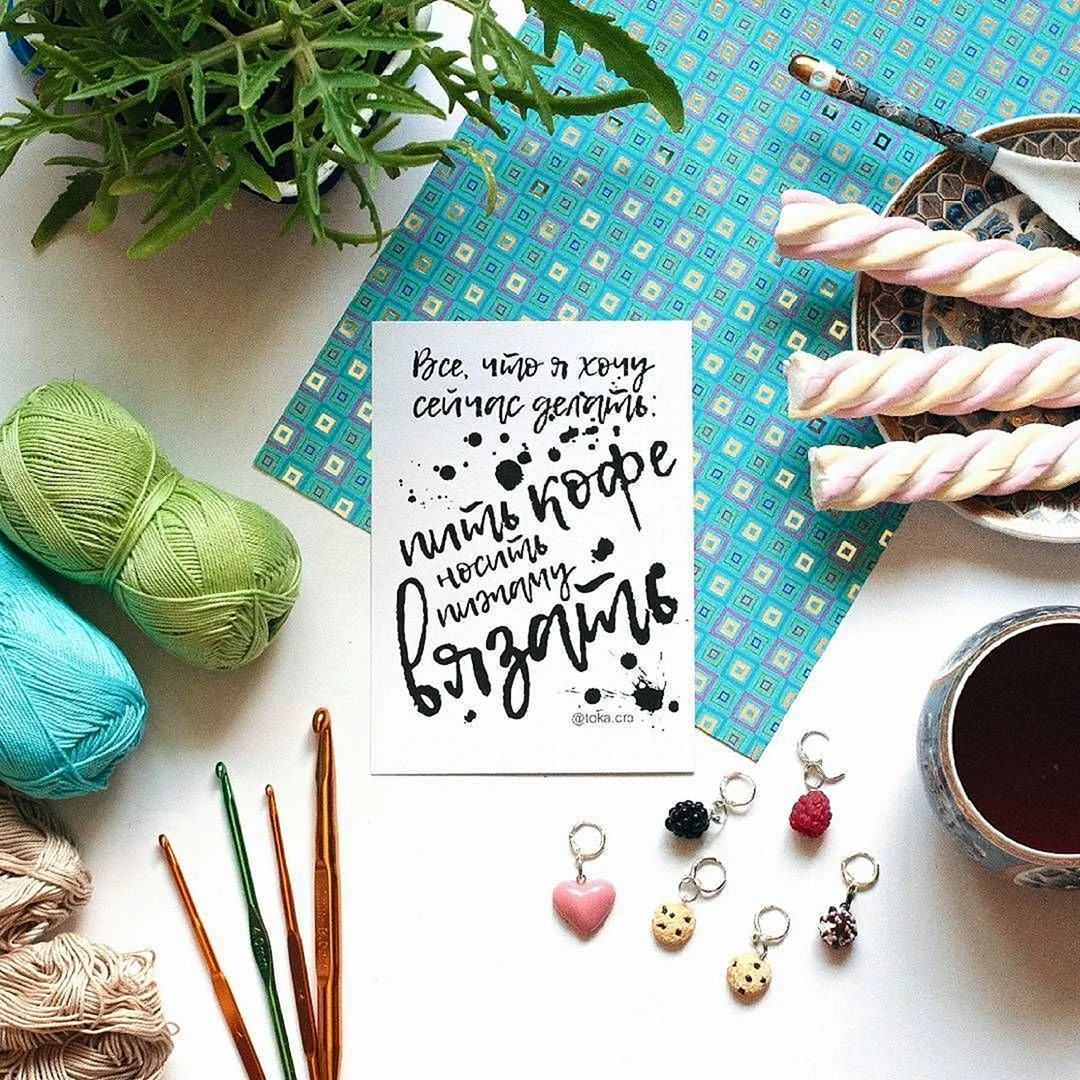 Все, что я хочу
сейчас делать:
пить кофе
носить
пижаму
вязать
@toka.cro